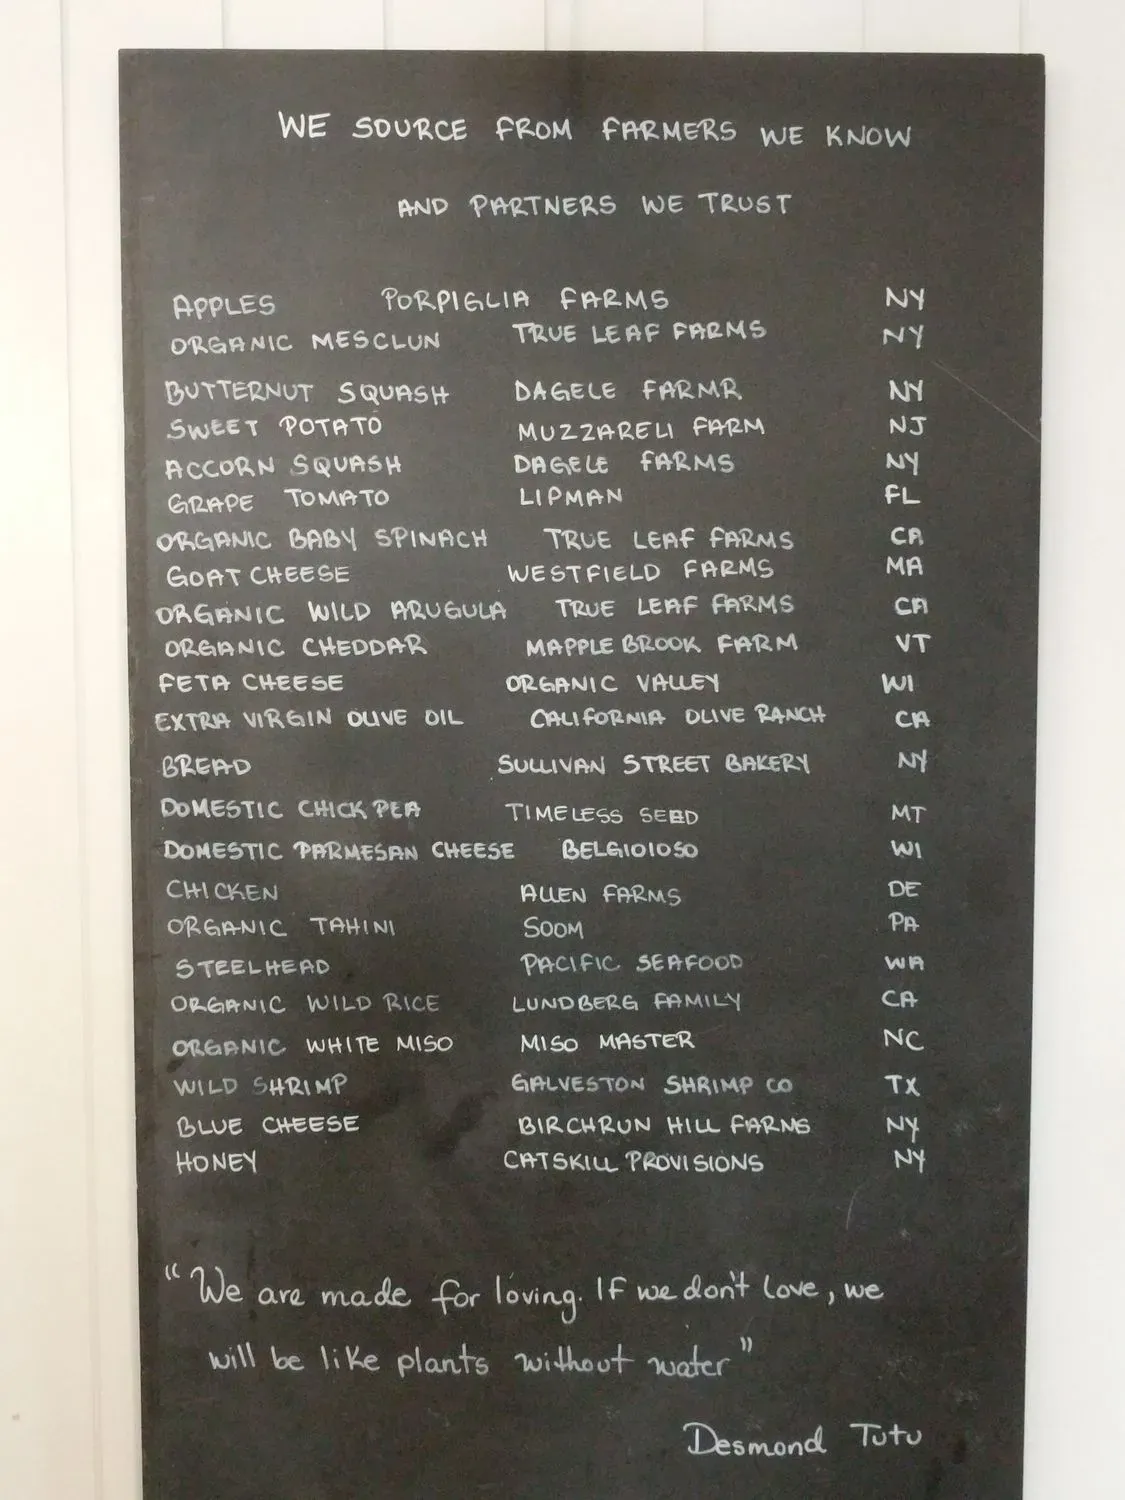 WE SOURCE FROM FARMERS WE KNOW
AND PARTNERS WE TRUST
APPLES PORPIGLIA FARMS NY
ORGANIC MESCLUN TRUE LEAF FARMS NY
BUTTERNUT SQUASH DAGELE FARMR NY
SWEET POTATO MUZZARELI FARM NJ
ACCORN SQUASH DAGELE FARMS NY
GRAPE TOMATO LIPMAN FL
ORGANIC BABY SPINACH TRUE LEAF FARMS CA
GOAT CHEESE WESTFIELD FARMS MA
ORGANIC WILD ARUGULA TRUE LEAF FARMS CA
ORGANIC CHEDDAR MAPPLE BROOK FARM VT
FETA CHEESE ORGANIC VALLEY WI
EXTRA VIRGIN OLIVE OIL CALIFORNIA OLIVE RANCH CA
BREAD SULLIVAN STREET BAKERY NY
DOMESTIC CHICK PEA TIMELESS SEED MT
DOMESTIC PARMESAN CHEESE BELGIOIOSO WI
CHICKEN ALLEN FARMS DE
ORGANIC TAHINI SOOM PA
STEELHEAD PACIFIC SEAFOOD WA
ORGANIC WILD RICE LUNDBERG FAMILY CA
ORGANIC WHITE MISO MISO MASTER NC
WILD SHRIMP GALVESTON SHRIMP CO TX
BLUE CHEESE BIRCHRUN HILL FARMS NY
HONEY CATSKILL PROVISIONS NY
"We are made for loving. If we don't love, we
will be like plants without water"
Desmond Tutu